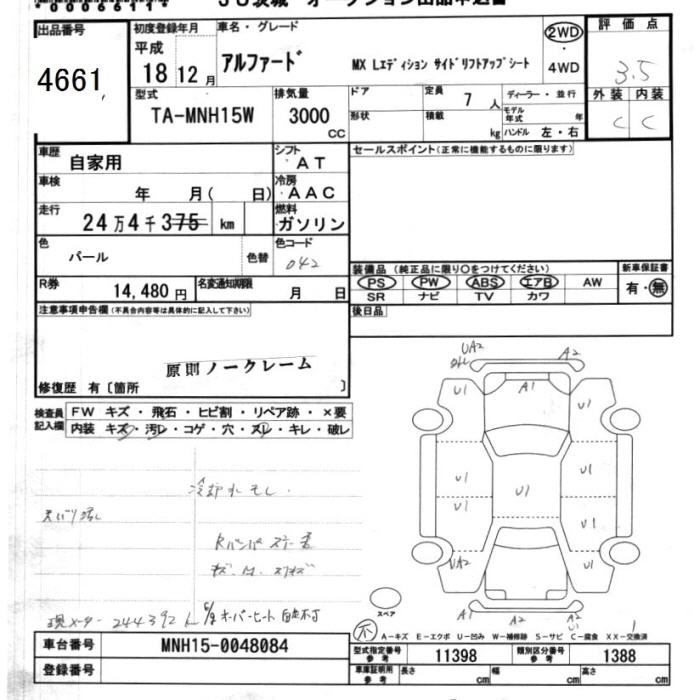 出品番号
4661
初度登録年月
平成
18 12月
車名・グレード
アルファード MX Lエディション サイドリフトアップシート
2WD
・
4WD
評価点
3.5
外装 内装
C C
型式
TA-MNH15W
排気量
3000 CC
ドア
形状
定員 7 人
積載 kg
ディーラー・並行
モデル年式 年
ハンドル 左・右
車歴 自家用
シフト AT
セールスポイント(正常に機能するものに限ります)
車検 年 月( 日)
冷房 AAC
走行 24万4千375 km
燃料 ガソリン
色 パール 色替
色コード 042
装備品 (純正品に限り○をつけてください)
新車保証書
PS PW ABS エアB AW
有・無
SR ナビ TV カワ
R券 14,480円
名変通知期限 月 日
後日品
注意事項申告欄(不具合内容等は具体的に記入して下さい)
原則ノークレーム
修復歴 有〔箇所 〕
検査員記入欄
FW キズ・飛石・ヒビ割・リペア跡・×要
内装 キズ・汚レ・コゲ・穴・スレ・キレ・破レ
冷却水モレ
天バリ
Rバンパ
現メーター 244392 オーバーヒート 自走不可
UA2 A2
U1 A1 U1
U1 U1 U1
U1 U1
UA2 U1
A1 A2
U1
スペア
A-キズ E-エクボ U-凹み W-補修跡 S-サビ C-腐食 XX-交換済
車台番号 MNH15-0048084
登録番号
型式指定番号参考 11398
類別区分番号参考 1388
車庫証明用参考 長さ cm 幅 cm 高さ cm